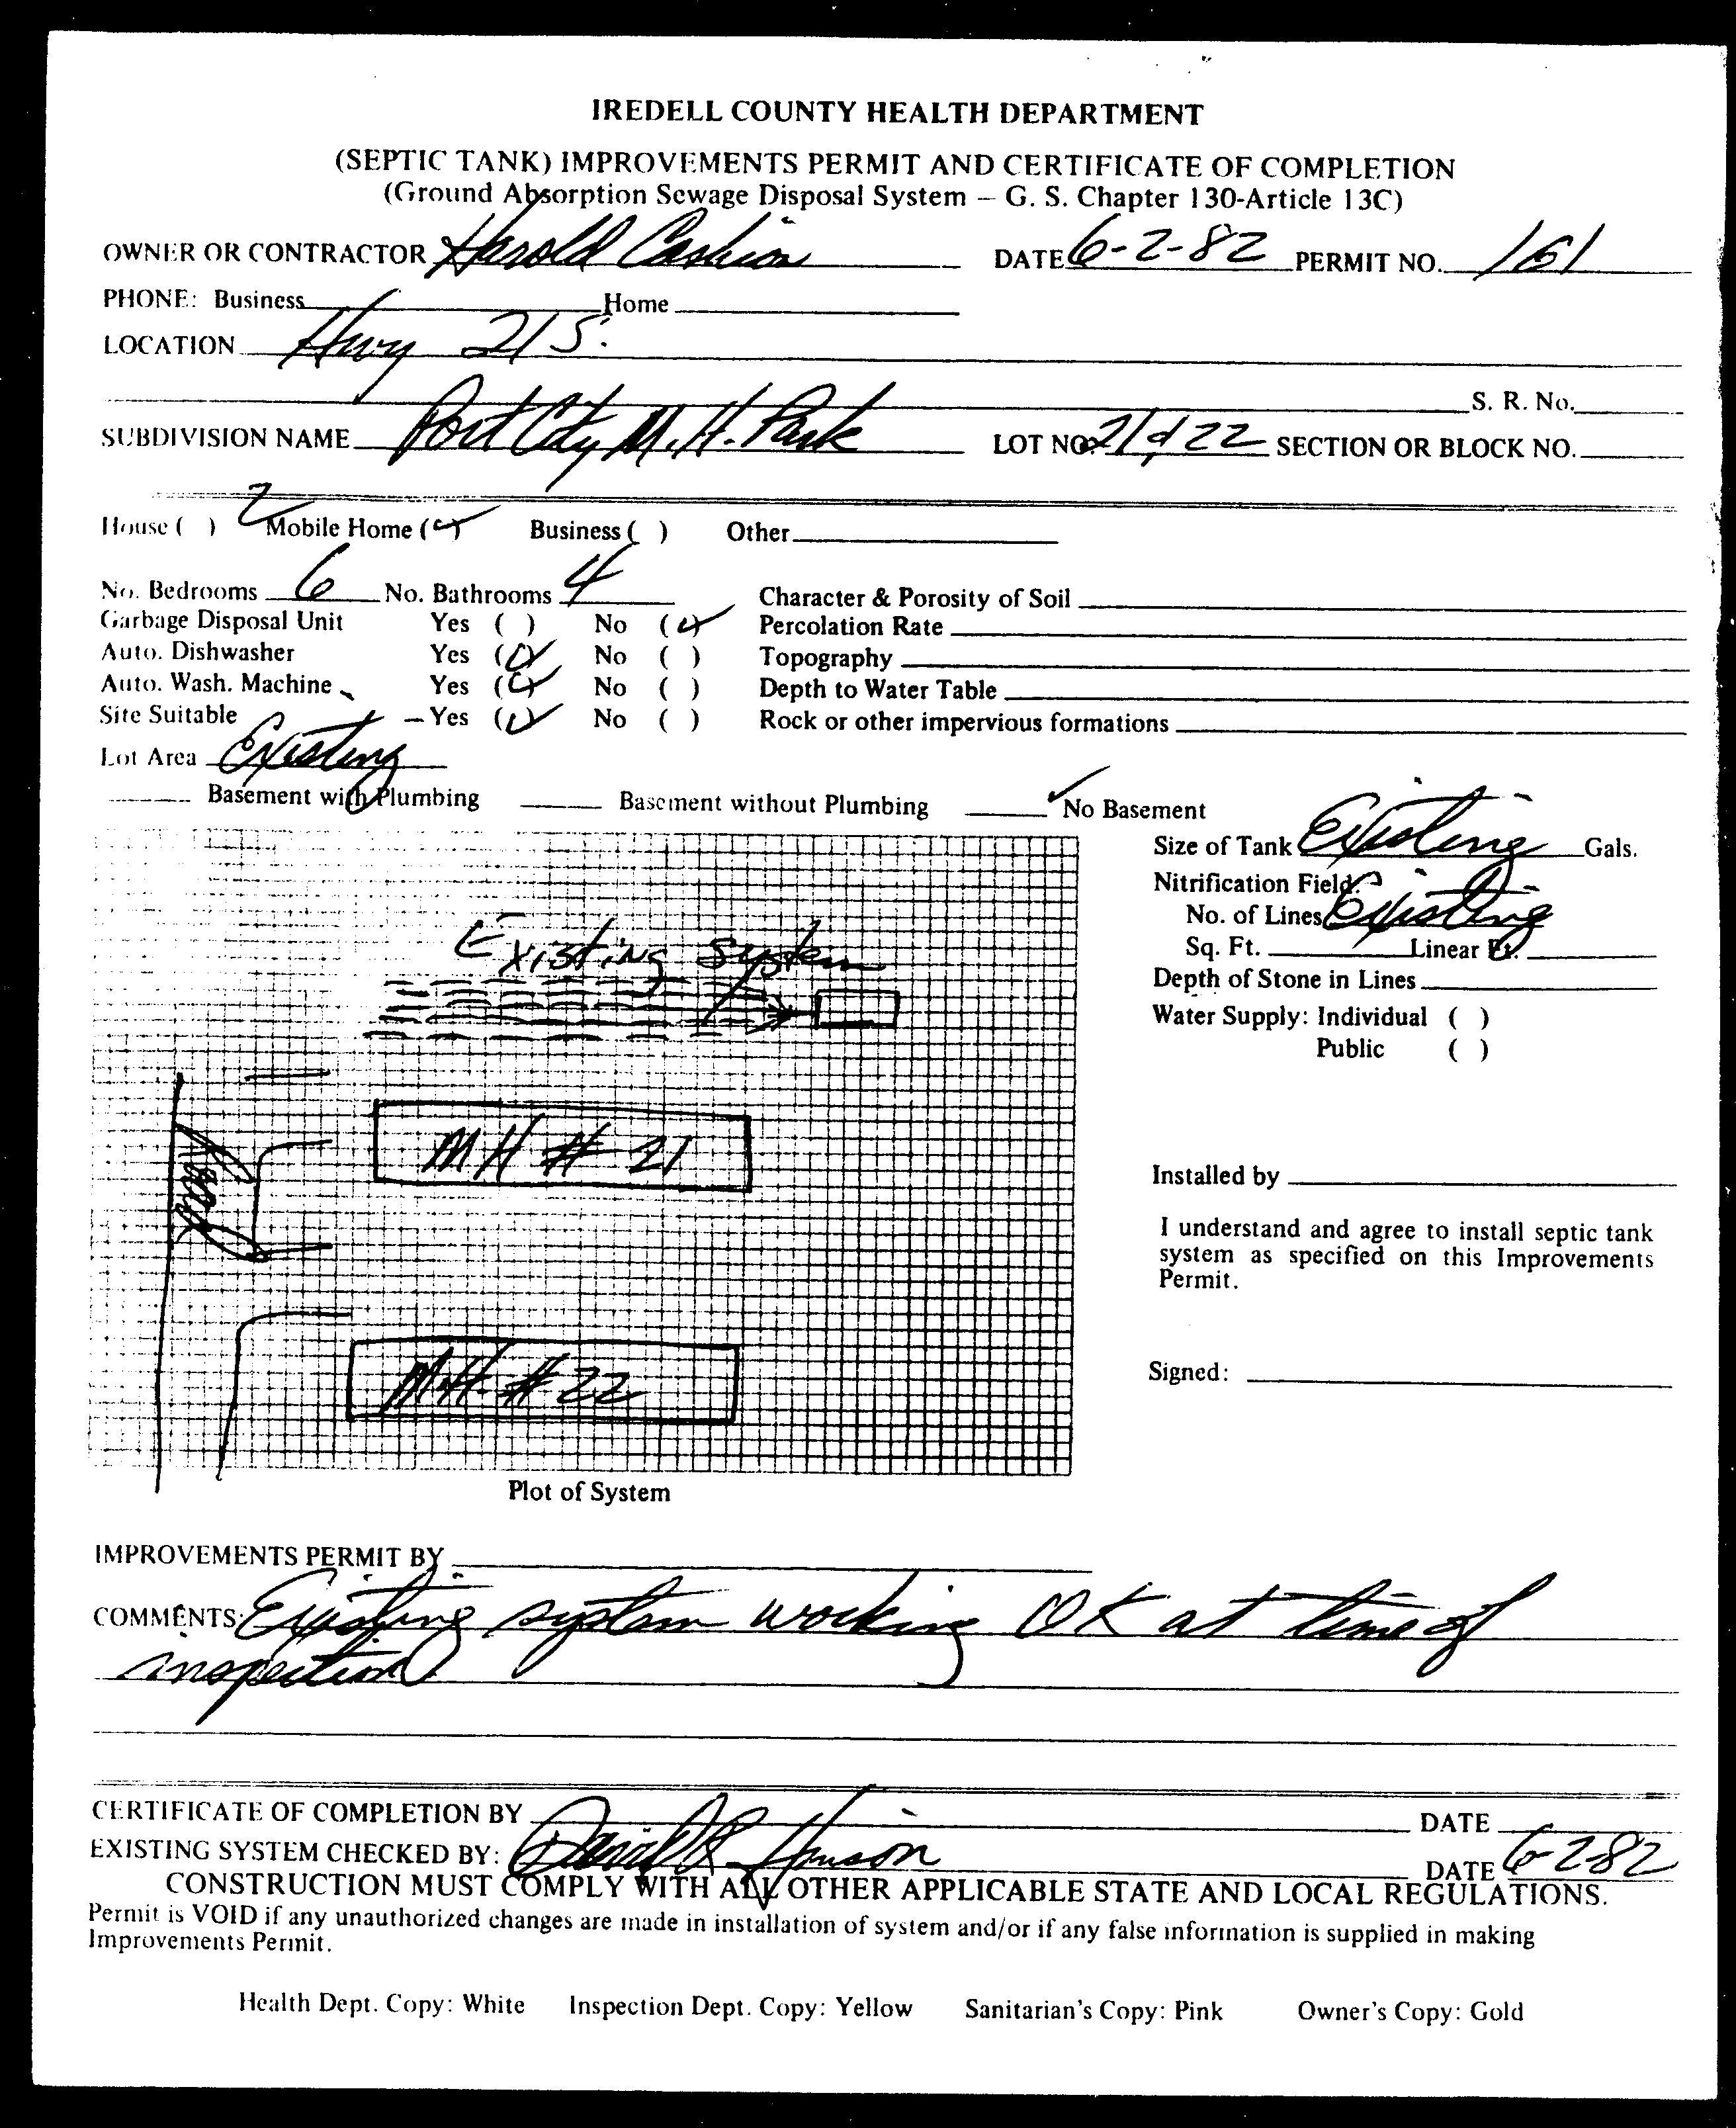 IREDELL COUNTY HEALTH DEPARTMENT
(SEPTIC TANK) IMPROVEMENTS PERMIT AND CERTIFICATE OF COMPLETION
(Ground Absorption Sewage Disposal System – G. S. Chapter 130-Article 13C)
OWNER OR CONTRACTOR Harold Cashion DATE 6-2-82 PERMIT NO. 161
PHONE: Business Home
LOCATION Hwy 21 S.
S. R. No.
SUBDIVISION NAME Port City M.H. Park LOT NO. 21 & 22 SECTION OR BLOCK NO.
House ( ) 2 Mobile Home (✓) Business ( ) Other
No. Bedrooms 6 No. Bathrooms 4 Character & Porosity of Soil
Garbage Disposal Unit Yes ( ) No (✓) Percolation Rate
Auto. Dishwasher Yes (✓) No ( ) Topography
Auto. Wash. Machine Yes (✓) No ( ) Depth to Water Table
Site Suitable Yes (✓) No ( ) Rock or other impervious formations
Lot Area Existing
Basement with Plumbing Basement without Plumbing ✓ No Basement
Size of Tank Existing Gals.
Nitrification Field:
No. of Lines Existing
Sq. Ft. Linear Ft.
Depth of Stone in Lines
Water Supply: Individual ( )
Public ( )
Existing System
MH # 21
MH # 22
Installed by
I understand and agree to install septic tank
system as specified on this Improvements
Permit.
Signed:
Plot of System
IMPROVEMENTS PERMIT BY
COMMENTS: Existing system working OK at time of
inspection
CERTIFICATE OF COMPLETION BY DATE
EXISTING SYSTEM CHECKED BY: David R. DATE 6-2-82
CONSTRUCTION MUST COMPLY WITH ALL OTHER APPLICABLE STATE AND LOCAL REGULATIONS.
Permit is VOID if any unauthorized changes are made in installation of system and/or if any false information is supplied in making
Improvements Permit.
Health Dept. Copy: White Inspection Dept. Copy: Yellow Sanitarian's Copy: Pink Owner's Copy: Gold